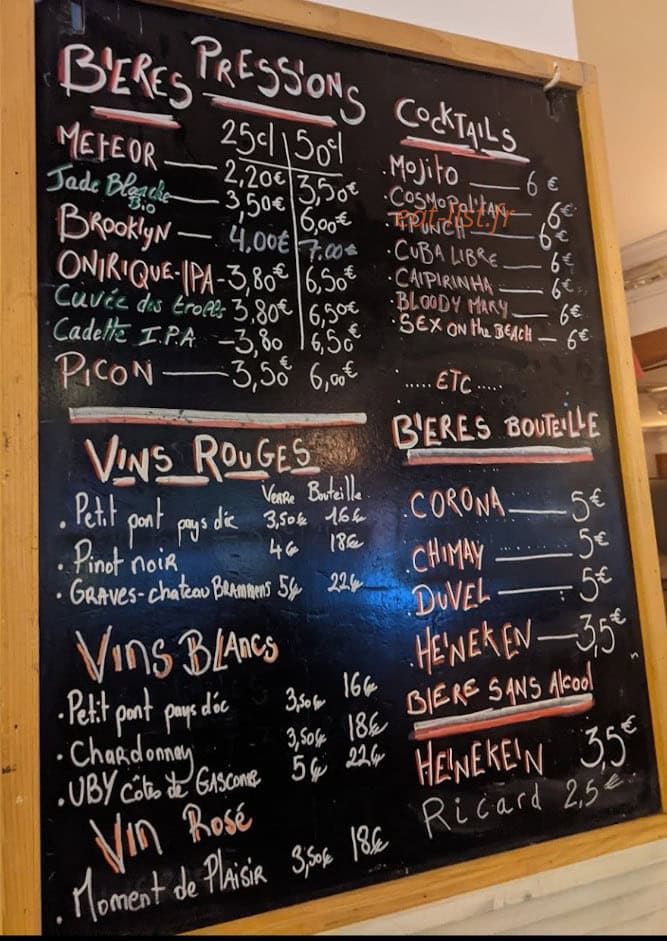 BIERES PRESSIONS
25cl 50cl
METEOR — 2,20€ 3,50€
Jade Blanche Bio — 3,50€ 6,00€
BROOKLYN — 4,00€ 7.00€
ONIRIQUE-IPA - 3,80€ 6,50€
Cuvée des trolls 3,80€ 6,50€
Cadette I.P.A - 3,80 6,50€
PICON — 3,50€ 6,00€
VINS ROUGES
Verre Bouteille
. Petit pont pays d'oc 3,50€ 16€
. Pinot noir 4€ 18€
. GRAVES - chateau 5€ 22€
VINS BLANCS
. Petit pont pays d'oc 3,50€ 16€
. Chardonnay 3,50€ 18€
. UBY Côtes de GASCOGNE 5€ 22€
Vin Rosé
. Moment de PLAISIR 3,50€ 18€
COCKTAILS
. Mojito — 6€
. COSMOPOLITAN — 6€
PUNCH — 6€
. CUBA LIBRE — 6€
. CAIPIRINHA — 6€
. BLOODY MARY — 6€
. SEX ON the BEACH — 6€
..... ETC .....
BIERES BOUTEILLE
. CORONA — 5€
. CHIMAY — 5€
. DUVEL — 5€
. HEINEKEN — 3,5€
BIERE SANS Alcool
HEINEKEIN 3,5€
Ricard 2,5€